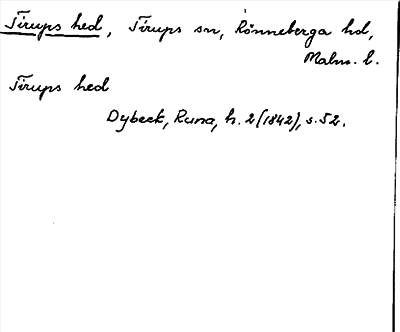 Tirups hed, Tirups sn, Rönneberga hd,
Malm. l.
Tirups hed
Dybeck, Runa, h. 2 (1842), s. 52.